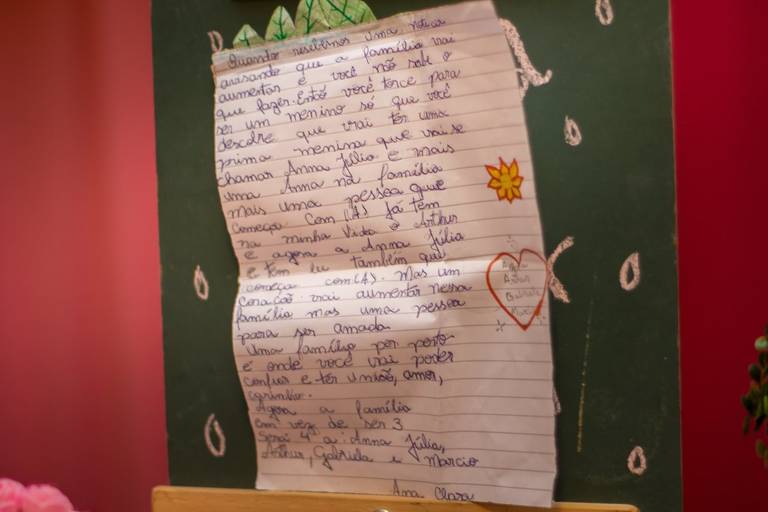 Quando recebemos uma notícia
avisando que a família vai
aumentar e você não sabe o
que fazer. Entõ você torce para
ser um menino só que você
descobre que vai ter uma
prima menina que vai se
chamar Anna Júlia e mais
uma Anna na família
mais uma pessoa que
começa com (A) já tem
na minha vida o Arthur
e agora a Anna Júlia
e tem eu também que
começa com (A). Mas um
coração vai aumentar nessa
família mas uma pessoa
para ser amada
Uma família por perto
é onde você vai poder
confiar e ter união, amor,
carinho.
Agora a família
em vez de ser 3
Será 4 a: Anna Júlia,
Arthur, Gabriela e Marcio
Ana Clara
Arthur
Gabriela